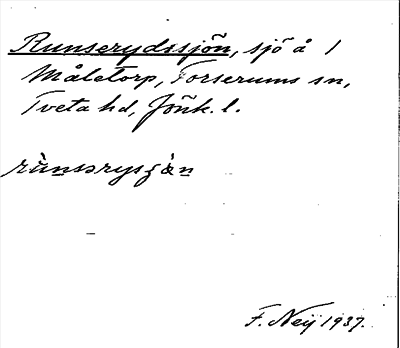 Runserydssjön, sjö å 1
Måletorp, Forserums sn,
Tveta hd, Jönk. l.
F. Neij 1937.